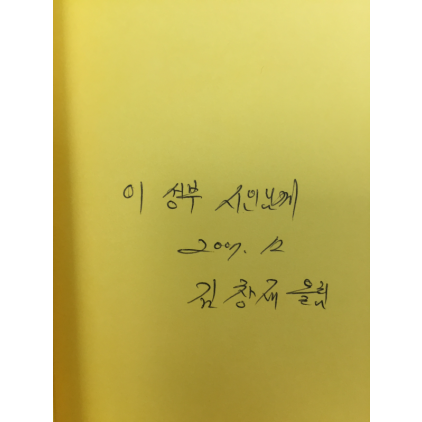 이 성부 시인님께
2007. 12
김창재 올림